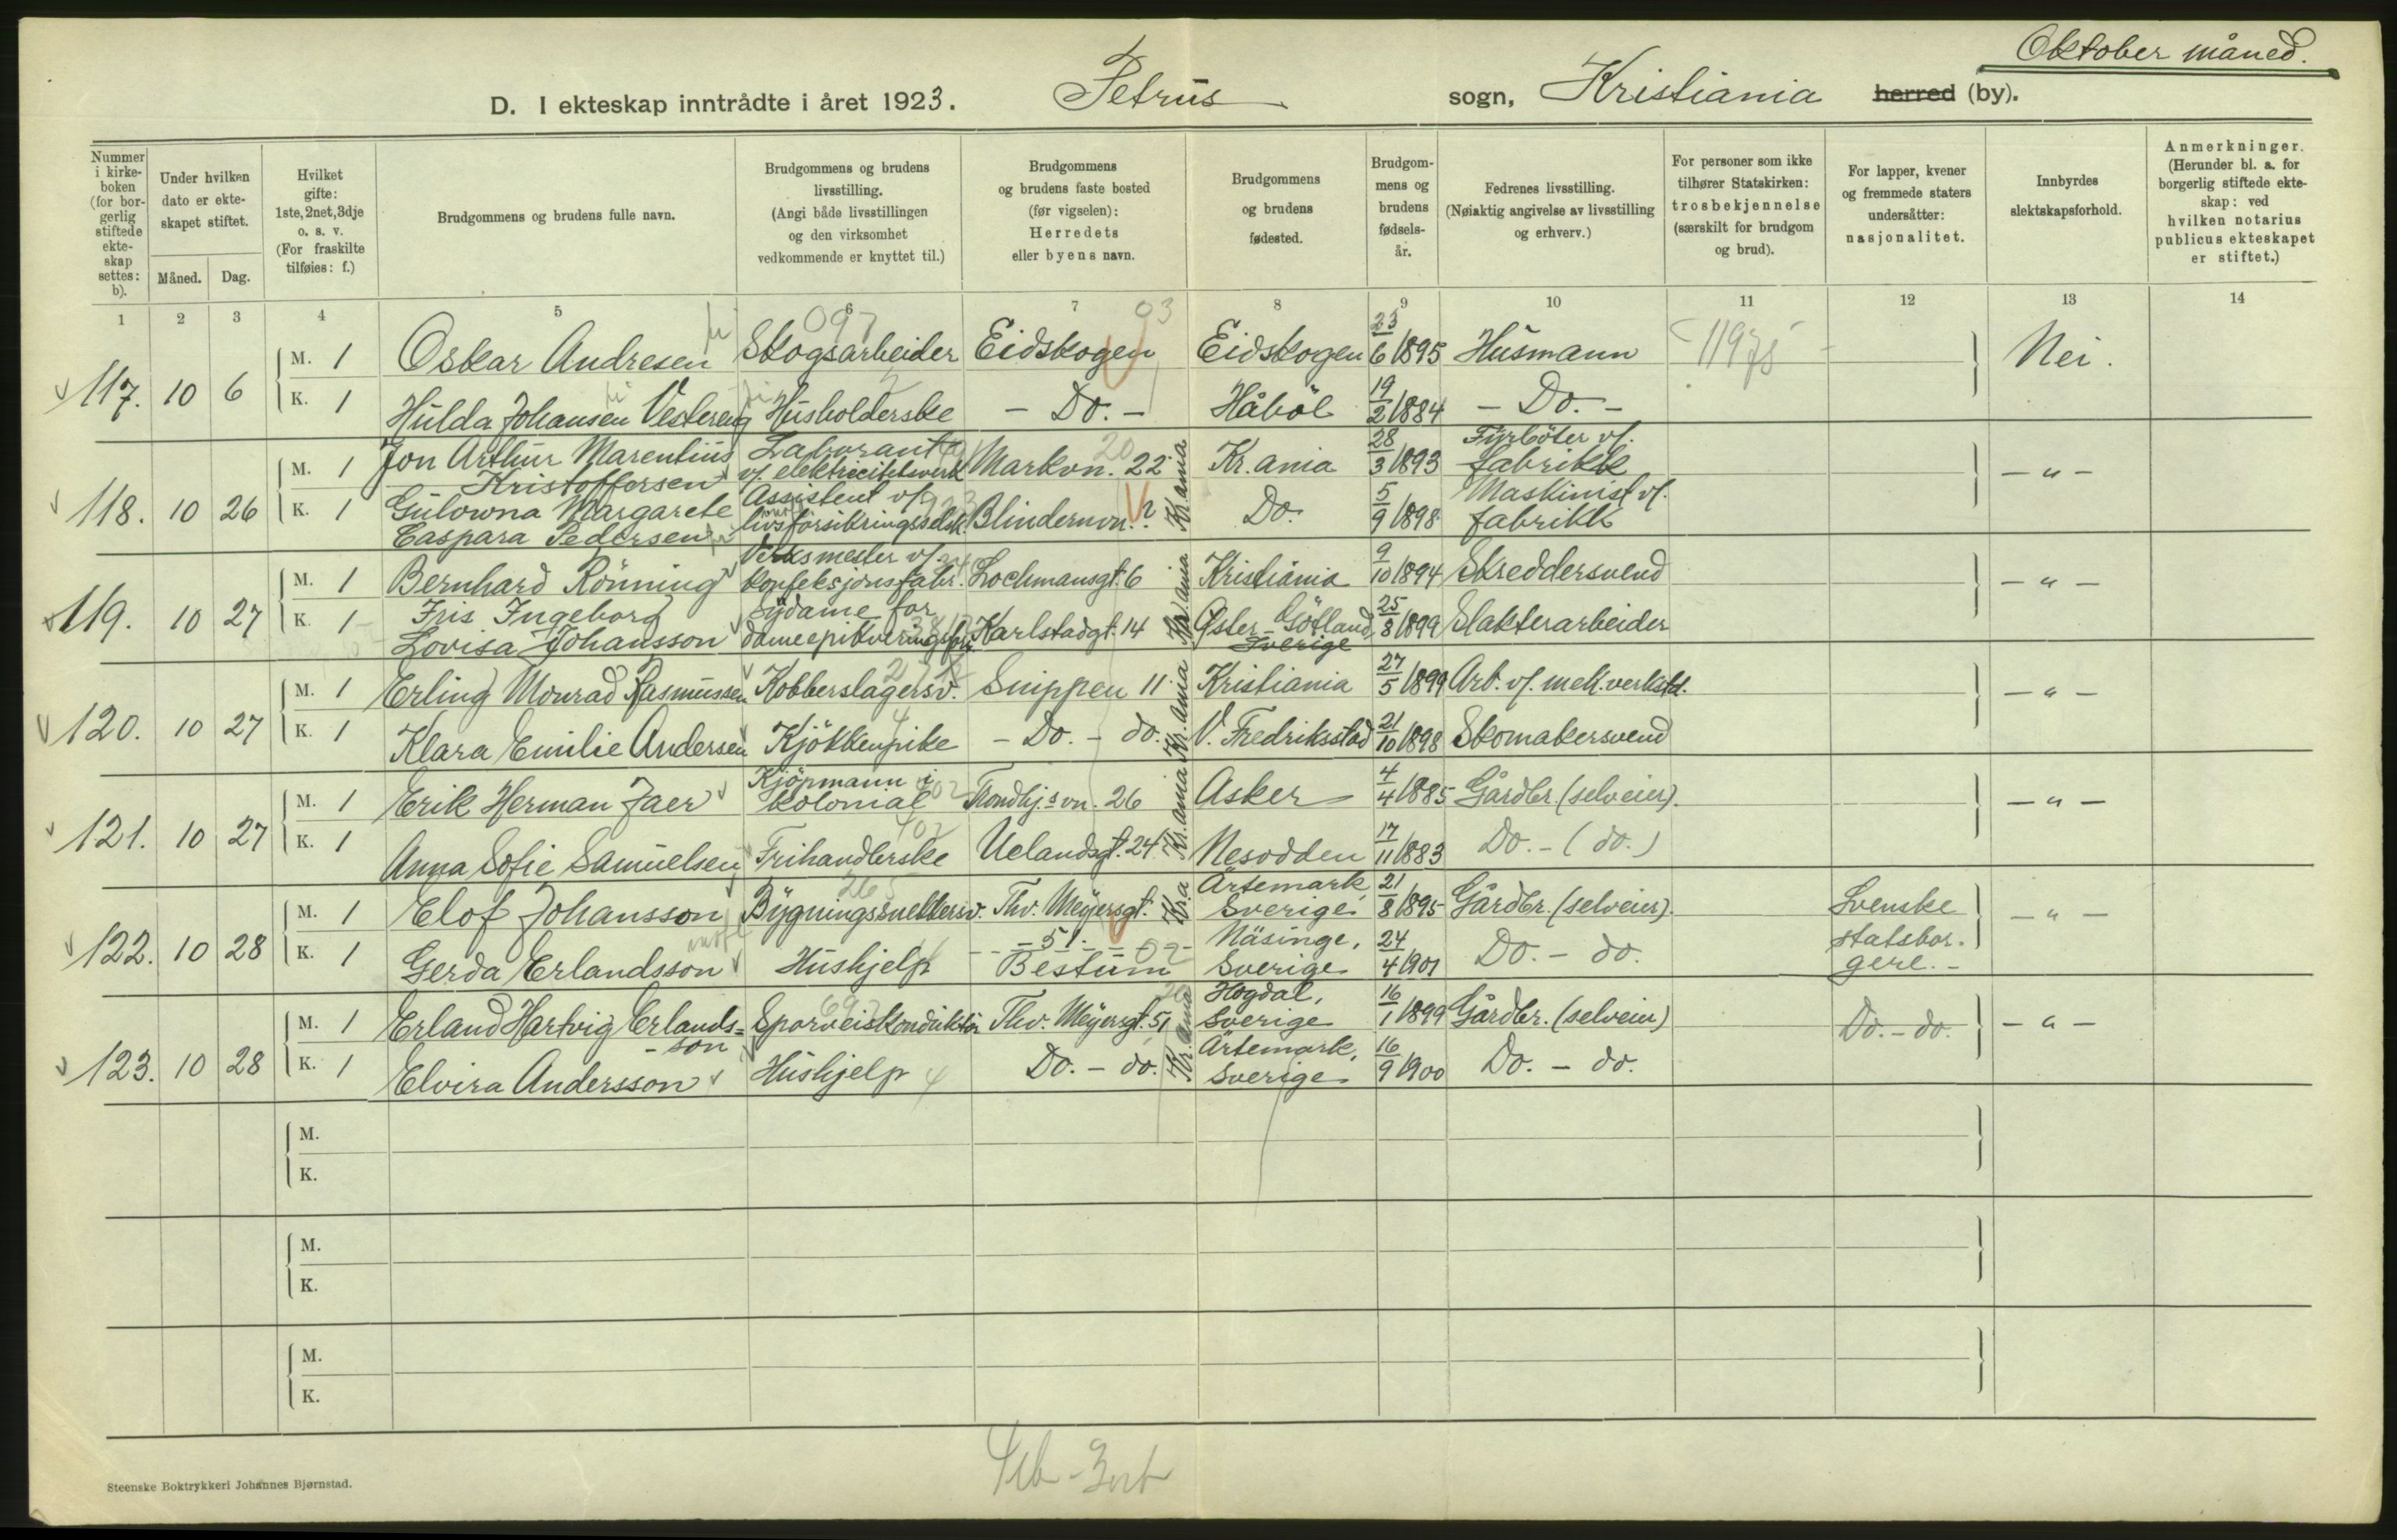 Oktober måned.
D. I ekteskap inntrådte i året 1923. Petrus sogn, Kristiania herred (by).
Nummer i kirkeboken (for borgerlig stiftede ekteskap settes: b).
Under hvilken dato er ekteskapet stiftet.
Måned. Dag.
Hvilket gifte: 1ste, 2net, 3dje o. s. v. (For fraskilte tilføies: f.)
Brudgommens og brudens fulle navn.
Brudgommens og brudens livsstilling. (Angi både livsstillingen og den virksomhet vedkommende er knyttet til.)
Brudgommens og brudens faste bosted (før vigselen): Herredets eller byens navn.
Brudgommens og brudens fødested.
Brudgommens og brudens fødselsår.
Fedrenes livsstilling. (Nøiaktig angivelse av livsstilling og erhverv.)
For personer som ikke tilhører Statskirken: trosbekjennelse (særskilt for brudgom og brud).
For lapper, kvener og fremmede staters undersåtter: nasjonalitet.
Innbyrdes slektskapsforhold.
Anmerkninger. (Herunder bl. a. for borgerlig stiftede ekteskap: ved hvilken notarius publicus ekteskapet er stiftet.)
1 2 3 4 5 6 7 8 9 10 11 12 13 14
117. 10 6 M. 1 Oskar Andresen Skogsarbeider Eidskogen Eidskogen 23/6 1895 Husmann Nei.
K. 1 Hulda Johansen Vestereng Husholderske - Do. - Håböl 19/2 1884 - Do. -
118. 10 26 M. 1 Jon Arthur Marentius Kristoffersen Laborant v/. elektricitetsverk Markvn. 22 Kr.ania Kr.ania 28/3 1893 Fyrböter v/. fabrikk - " -
K. 1 Gulowna Margarete Caspara Pedersen Assistent v/. livsforsikringsselsk. Blindernvn. ? Do. 5/9 1898 Maskinist v/. fabrikk
119. 10 27 M. 1 Bernhard Rönning Verksmester v/. konfeksjonsfabr. Lochmansgt. 6 Kr.ania Kristiania 9/10 1894 Skreddersvend - " -
K. 1 Iris Ingeborg Lovisa Johansson Sydame for Karlstadgt. 14 Øster-Götland, Sverige 25/8 1899 Slakterarbeider
120. 10 27 M. 1 Erling Monrad Rasmussen Kobberslagersv. Snippen 11 Kr.ania Kristiania 27/5 1899 Arb. v/. mek. verkstd. - " -
K. 1 Klara Emilie Andersen Kjökkenpike - Do. - do. V. Fredriksstad 21/10 1898 Skomakersvend
121. 10 27 M. 1 Erik Herman Jaer Kjöpmann i kolonial Trondhj.svn. 26 Kr.ania Asker 4/4 1885 Gårdbr. (selveier). - " -
K. 1 Anna Sofie Samuelsen Frihandlerske Uelandsgt. 24 Nesodden 17/11 1883 Do. - (do.)
122. 10 28 M. 1 Elof Johansson Bygningssnekkersv. Thv. Meyersgt. - 51 - Kr.a Ärtemark Sverige 21/8 1895 Gårdbr. (selveier). Svenske statsborgere. - - " -
K. 1 Gerda Erlandsson Hushjelp Bestum Näsinge, Sverige 24/4 1901 Do. - do.
123. 10 28 M. 1 Erland Hartvig Erlands=son Sporveiskonduktör Thv. Meyersgt. 51 Kr.ania Hogdal, Sverige 16/1 1899 Gårdbr. (selveier) Do. - do. - " -
K. 1 Elvira Andersson Hushjelp Do. - do. Ärtemark, Sverige 16/9 1900 Do. - do.
M.
K.
M.
K.
M.
K.
Steenske Boktrykkeri Johannes Bjørnstad.